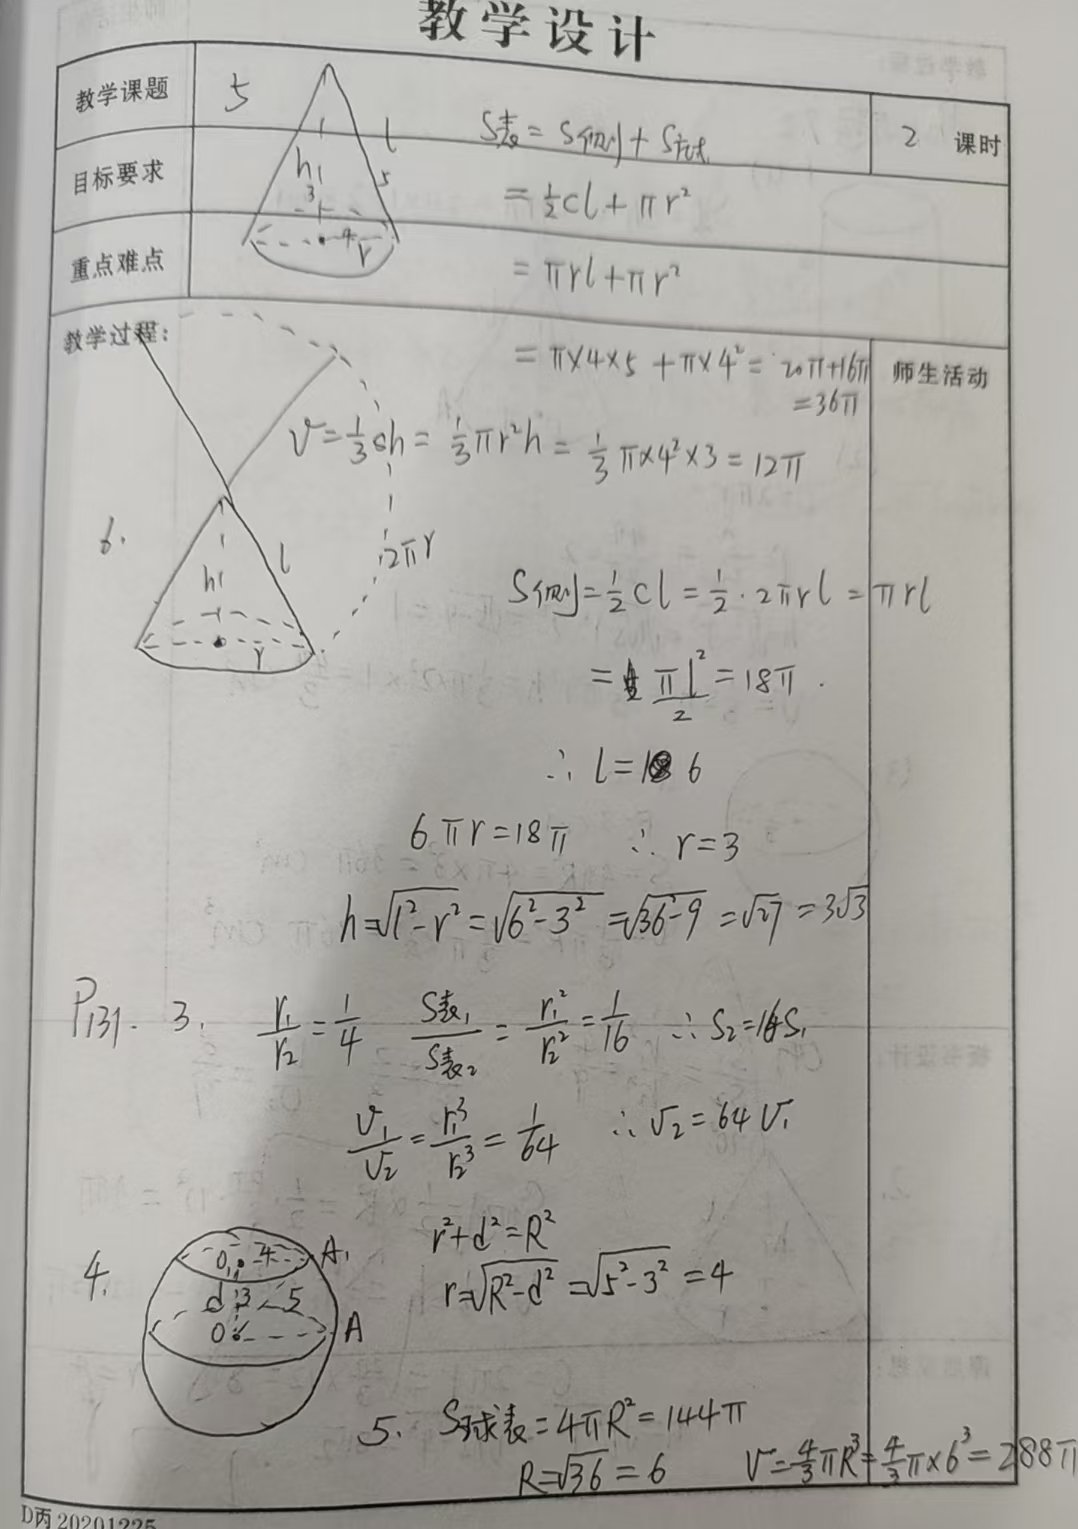 教学设计
教学课题 5 2 课时
目标要求
重点难点
h 3 4 r l 5
S表 = S侧 + S底
= ½cl + πr²
= πrl + πr²
教学过程:
师生活动
= π×4×5 + π×4² = 20π+16π
= 36π
V = 1/3 sh = 1/3 πr²h = 1/3 π×4²×3 = 12π
6.
h l r 2πr
S侧 = 1/2 cl = 1/2 · 2πrl = πrl
= πl²/2 = 18π.
∴ l = 6
6πr = 18π ∴ r = 3
h = √(l²-r²) = √(6²-3²) = √(36-9) = √27 = 3√3
P131. 3. r₁/r₂ = 1/4 S表₁/S表₂ = r₁²/r₂² = 1/16 ∴ S₂ = 16S₁
V₁/V₂ = r₁³/r₂³ = 1/64 ∴ V₂ = 64V₁
4.
O₁ 4 A₁
d 3 5
O A
r²+d²=R²
r = √(R²-d²) = √(5²-3²) = 4
5. S球表 = 4πR² = 144π
R = √36 = 6 V = 4/3 πR³ = 4/3 π×6³ = 288π
D丙 20201225